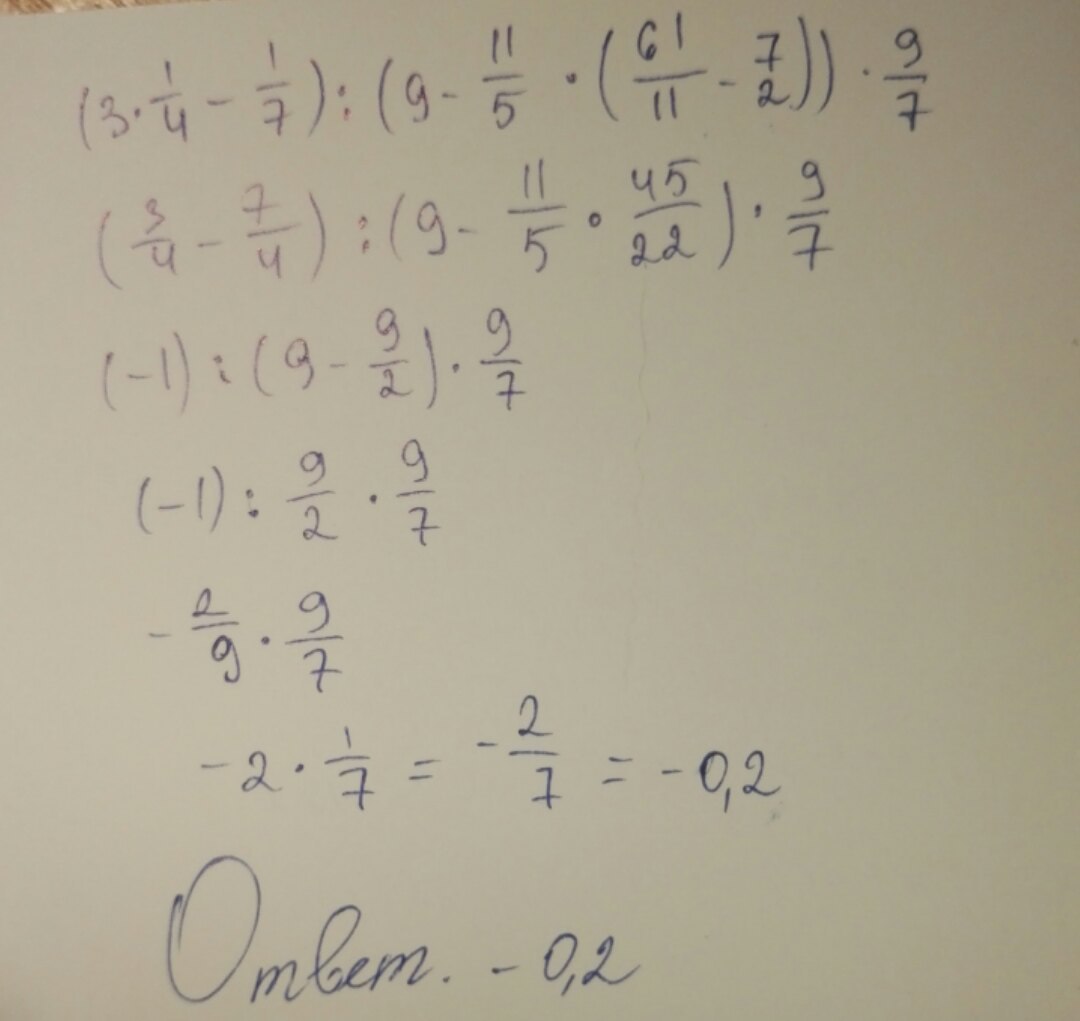 (3·1/4 - 1/7) : (9 - 11/5 · (61/11 - 7/2)) · 9/7
(3/4 - 7/4) : (9 - 11/5 · 45/22) · 9/7
(-1) : (9 - 9/2) · 9/7
(-1) : 9/2 · 9/7
- 2/9 · 9/7
-2 · 1/7 = -2/7 = -0,2
Ответ. -0,2